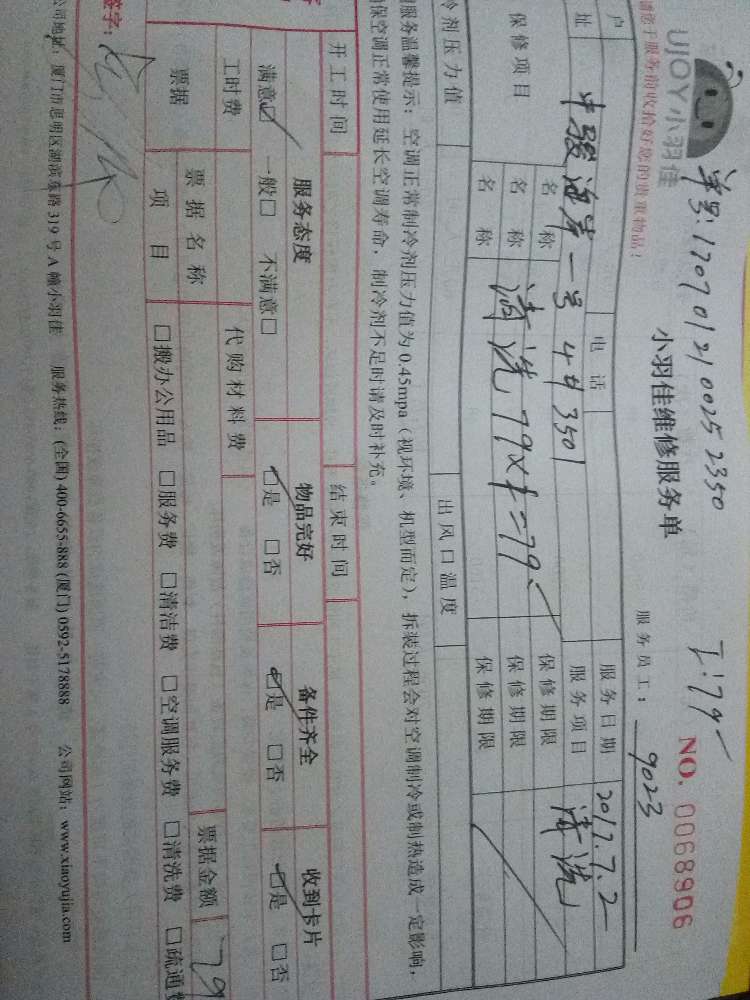 单号:170701210025 2350
T:79-
UJOY小羽佳
小羽佳维修服务单
NO. 0068906
请您于服务前收拾好您的贵重物品!
服务员工: 9023
户 电话 服务日期 2017.7.2
址 中骏海岸一号 4# 3501 服务项目 清洗
保修项目 名称 保修期限
名称 清洗 79×1=79- 保修期限
名称 保修期限
冷剂压力值 出风口温度
服务温馨提示:空调正常制冷剂压力值为0.45mpa(视环境、机型而定),拆装过程会对空调制冷或制热造成一定影响,
保空调正常使用延长空调寿命,制冷剂不足时请及时补充。
开工时间 结束时间
服务态度 物品完好 备件齐全 收到卡片
满意☑ 一般□ 不满意□ ☑是 □否 ☑是 □否 ☑是 □否
工时费 代购材料费
票据 票据名称 票据金额 79
项目 □搬办公用品 □服务费 □清洁费 □空调服务费 □清洗费 □疏通费
签字:
公司地址:厦门市思明区湖滨东路319号A幢小羽佳 服务热线:(全国)400-6655-888(厦门)0592-5178888 公司网站:www.xiaoyujia.com